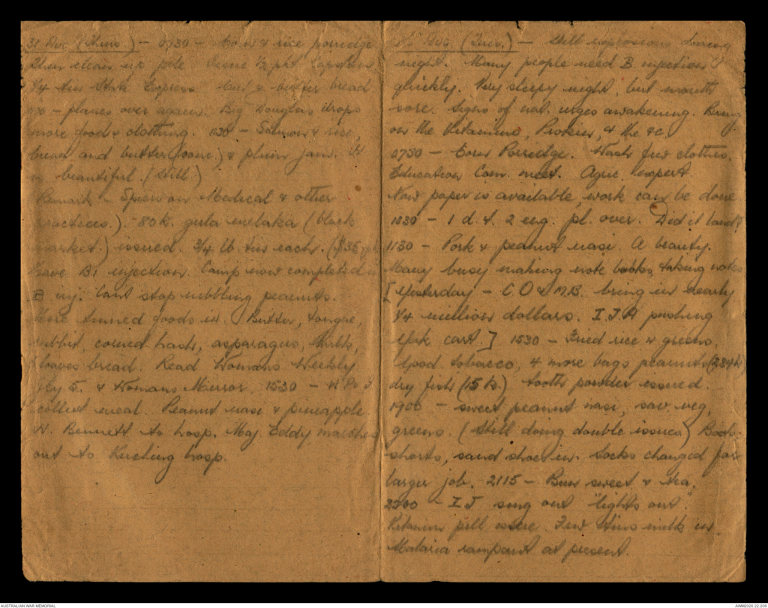 (Thurs.) — 0730 — Corn & rice porridge
clean up pole. Issue 1/2 pkt
1/4 tin State Express. & butter bread
planes over again. Big Douglas drops
more food & clothing. 1130 — Salmon & rice,
bread and butter & plum jam.
beautiful. (Still)
on Medical & other
practices.) 80 k. gula melaka (black
market.) issued. 3/4 lb. tin each.
Have B1 injection. Camp now completed
B inj. Cant stop nibbling peanuts.
More tinned goods in. Butter, tongue,
rabbit, corned hash, asparagus, milk,
loaves bread. Read Womans Weekly
& Womans Mirror. 1530 —
collect meal. Peanut nasi & pineapple.
H. Bennett to hosp. Maj. Eddy marches
out to Kuching hosp.
(Tues.) — Still explosions during
night. Many people need B injections
quickly. Very sleepy night but mouth
sore. Signs of urges awakening. Being
on the Vitamins, Proteins, & the &c.
0730 — Corn Porridge. Wash few clothes.
Education Com. meet. Agric. expert.
Now paper is available, work can be done.
1030 — 1 d. & 2 eng. pl. over. Did it land?
1130 — Pork & peanut nasi. A beauty.
Many busy making note books, taking notes
[Yesterday — C.O & M.B. bring in nearly
1/4 million dollars. I.J.A pushing
cart] 1530 — Fried rice & greens,
Good tobacco, 4 more bags peanuts
dry fish (15 k.) tooth powder issued.
1900 — sweet peanut nasi, sav. veg,
greens. (Still doing double issues) Boots,
shorts, sand shoes in. Socks changed for
larger job. 2115 — Bun sweet & tea.
2200 — I J sing out "lights out".
Vitamin pill issue. Few tins milk in.
Malaria rampant at present.
AUSTRALIAN WAR MEMORIAL